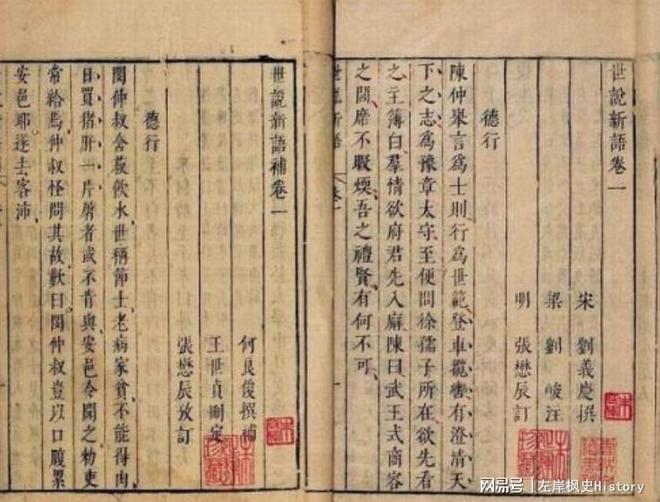 世說新語卷一
宋 劉義慶撰
梁 劉峻注
明 張懋辰訂
德行
陳仲舉言爲士則行爲世範登車攬轡有澄清天
下之志爲豫章太守至便問徐孺子所在欲先看
之主簿白羣情欲府君先入廨陳曰武王式商容
之閭席不暇煗吾之禮賢有何不可
世說新語 卷一
世說新語補卷一
何良俊撰補
王世貞刪定
張懋辰攷訂
德行
閔仲叔含菽飲水世稱節士老病家貧不能得肉
日買猪肝一片屠者或不肯與安邑令聞之勑吏
常給焉仲叔怪問其故歎曰閔仲叔豈以口腹累
安邑耶遂去客沛
网易号 | 左岸枫史History